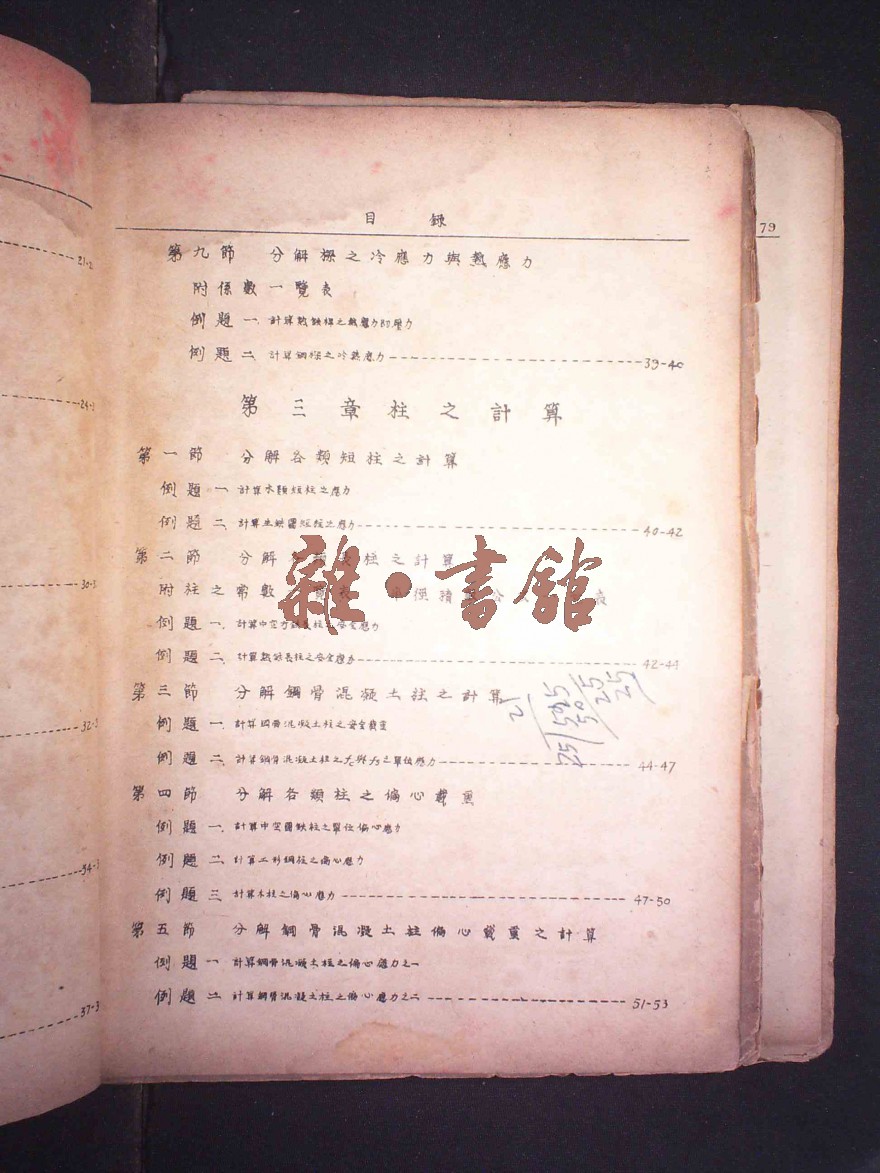 目 錄
第九節 分解樑之冷應力與熱應力
附係數一覽表
例題一、計算熟鉄桿之熱應力即壓力
例題二、計算鋼樑之冷熱應力 39-40
第三章 柱之計算
第一節 分解各類短柱之計算
例題一、計算木類短柱之應力
例題二、計算生鉄圓短柱之應力 40-42
第二節 分解 長柱之計算
附柱之常數 表
例題一、計算中空方 長柱之安全應力
例題二、計算熟鉄長柱之安全應力 42-44
第三節 分解鋼骨混凝土柱之計算
例題一、計算鋼骨混凝土柱之安全載重
例題二、計算鋼骨混凝土柱之 與 之單位應力 44-47
第四節 分解各類柱之偏心載重
例題一、計算中空圓鉄柱之單位偏心應力
例題二、計算工形鋼柱之偏心應力
例題三、計算木柱之偏心應力 47-50
第五節 分解鋼骨混凝土柱偏心載重之計算
例題一、計算鋼骨混凝土柱之偏心應力之一
例題二、計算鋼骨混凝土柱之偏心應力之二 51-53
雜·書館
21
25
525
50
25
25
79
21-2
24-2
30-3
32-3
34-3
37-3